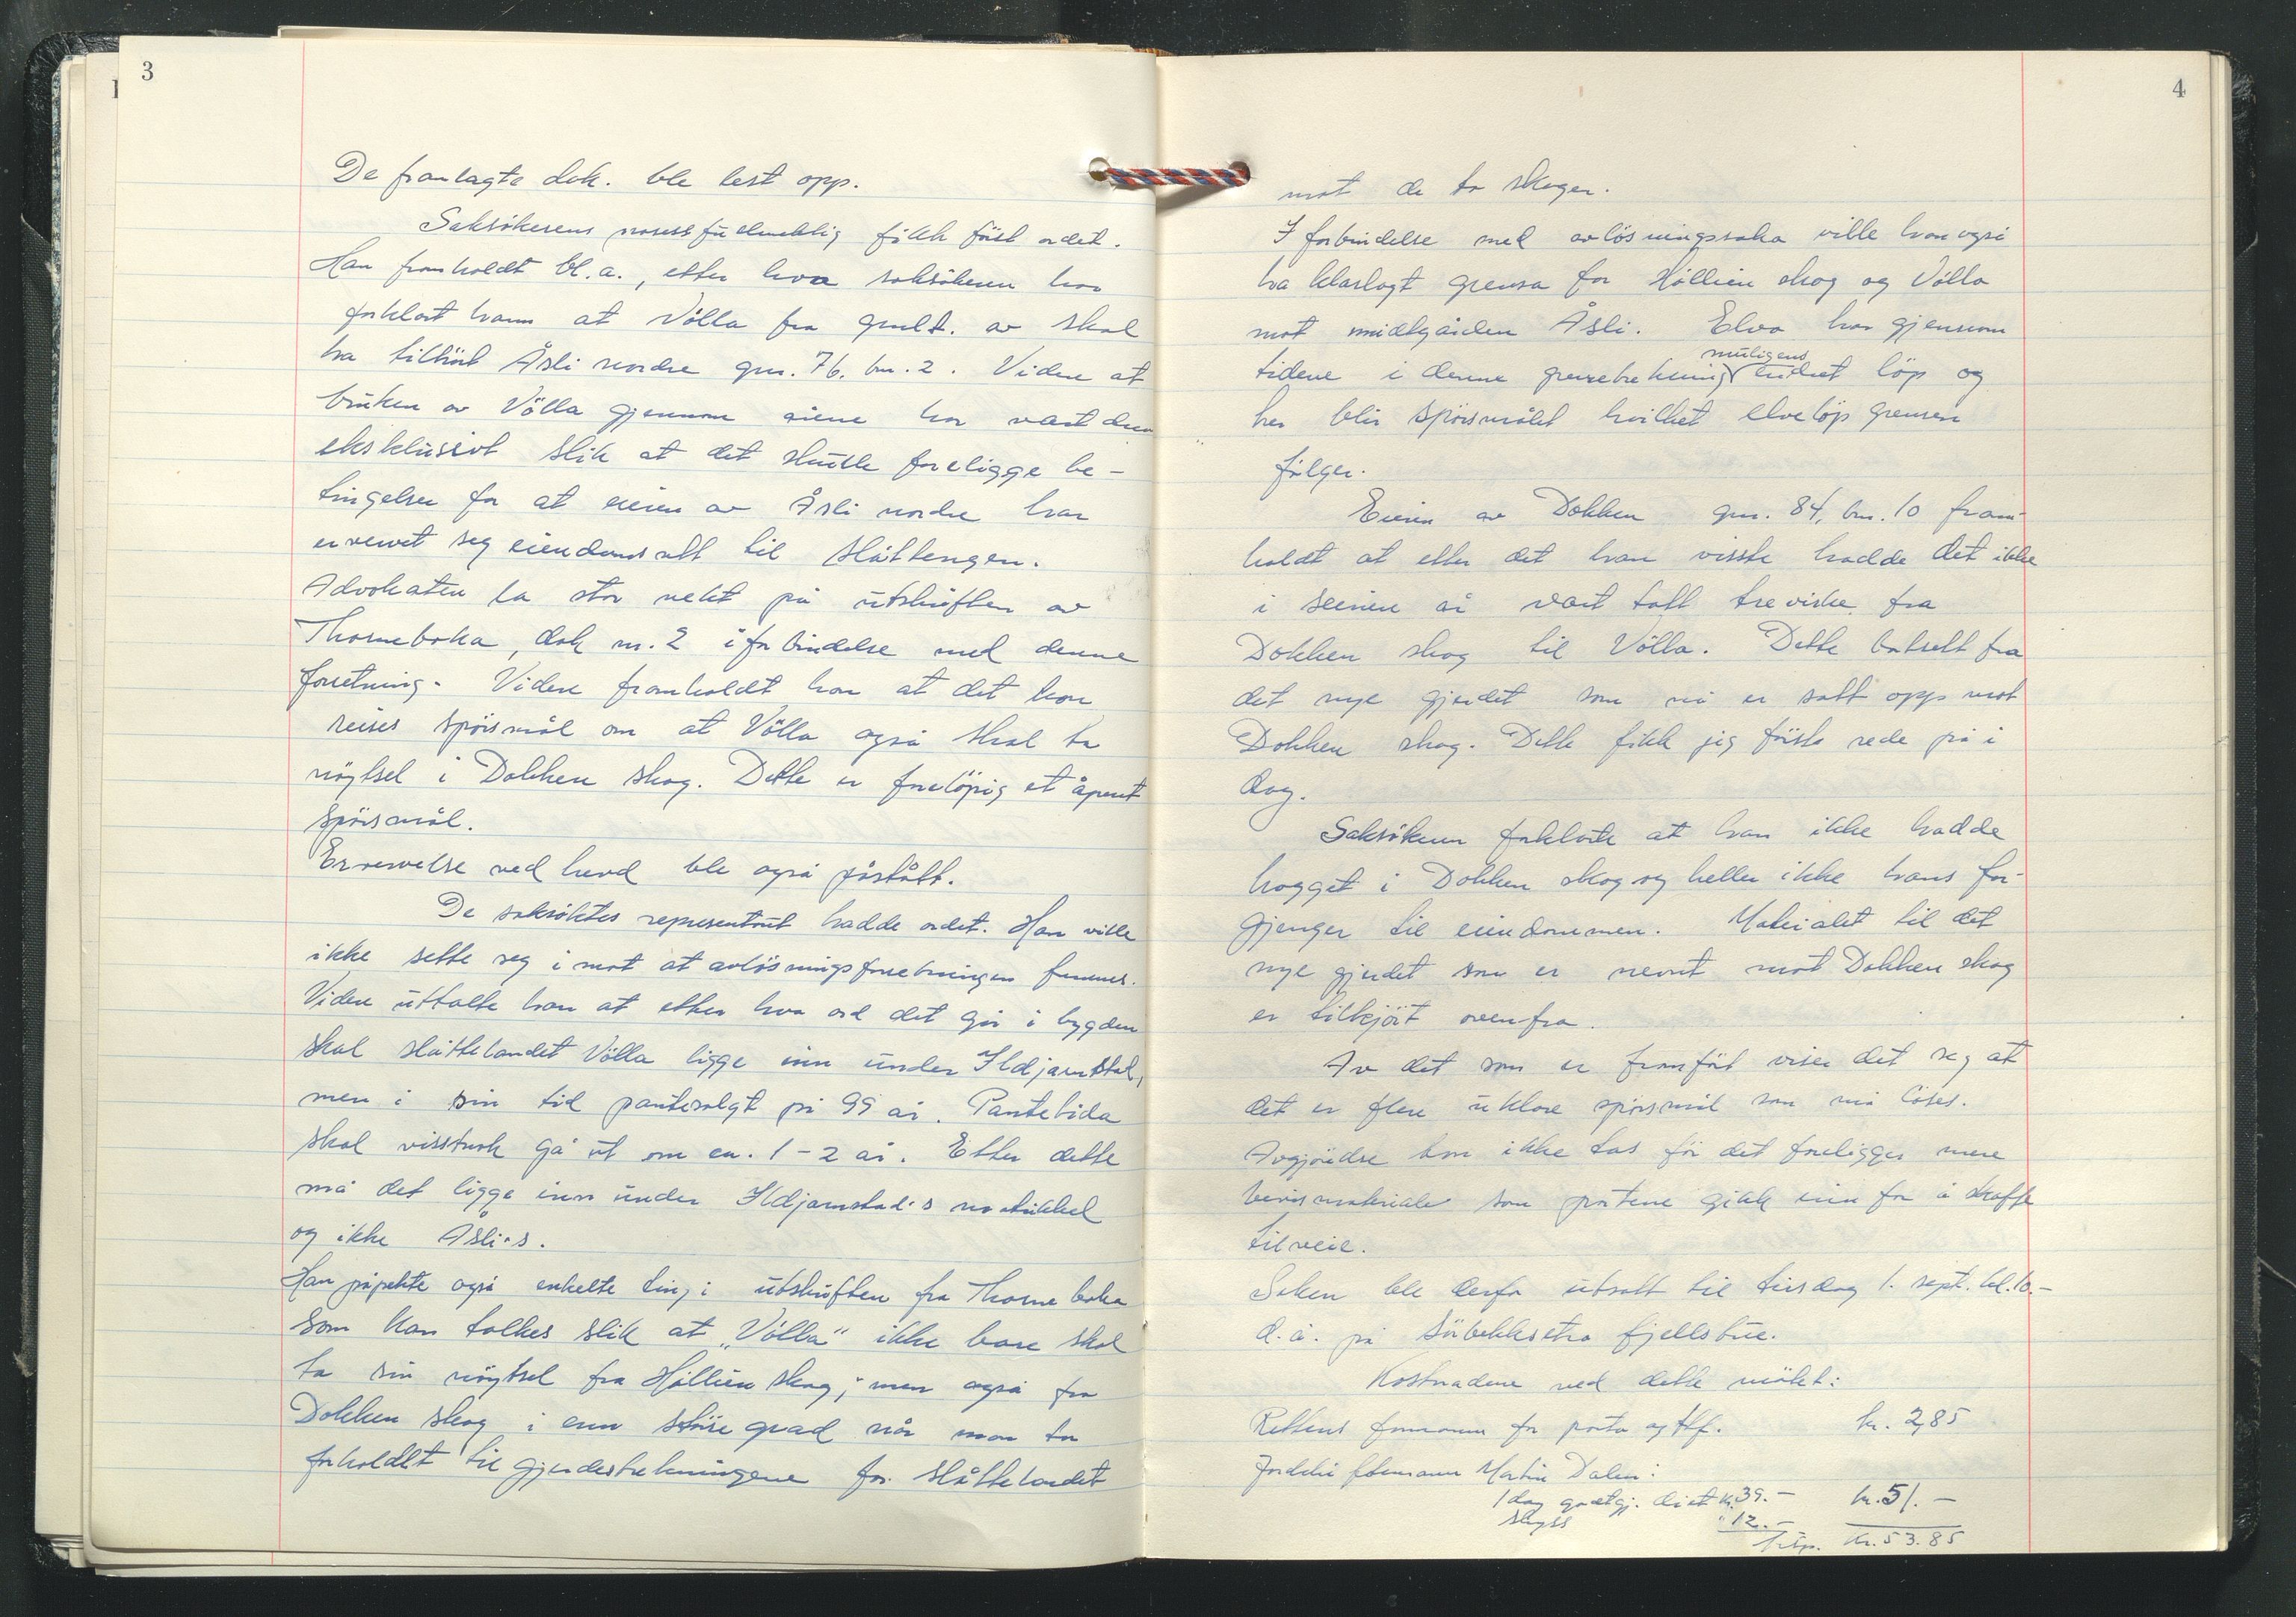 3
De framlagte dok. ble lest opp.
Saksökerens prosessfuldmektig fikk först ordet.
Han framholdt bl.a., etter hva saksökeren har
forklart ham at Völla fra gmlt. av skal
ha tilhört Åsli nordre gnr. 76. bnr. 2. Videre at
bruken av Völla gjennom årene har vært den
eksklusivt slik at det skulle foreligge be-
tingelser for at eieren av Åsli nordre har
ervervet seg eiendomsrett til slåttengen.
Advokaten la stor vekt på utskriften av
Thorneboka, dok nr. 2 i forbindelse med denne
forretning. Videre framholdt han at det kan
reises spörsmål om at Völla også skal ha
nöytsel i Dokken skog. Dette er forelöpig et åpent
spörsmål.
Ervervelse ved hevd ble også påstått.
De saksöktes representant hadde ordet. Han ville
ikke sette seg imot at avlösningsforretningen fremmes.
Videre uttalte han at etter hva ord det går i bygden
skal slåttelandet Völla ligge inn under Ildjarnstad,
men i sin tid pantesolgt på 99 år. Pantetida
skal visstnok gå ut om ca. 1-2 år. Etter dette
må det ligge inn under Ildjarnstad's matrikkel
og ikke Åsli's.
Han påpekte også enkelte ting i utskriften fra Thorneboka
som kan tolkes slik at „Völla“ ikke bare skal
ta sin nöytsel fra Höllien skog, men også fra
Dokken skog i enn större grad når man tar
forholdet til gjerdestrekningene for slåttelandet
4
mot de to skoger.
I forbindelse med avlösningssaka ville han også
ha klarlagt grensa for Höllien skog og Völla
mot midtgården Åsli. Elva har gjennom
muligens
tidene i denne grensetrekning endret löp og
her blir spörsmålet hvilket elvelöp grensen
fölger.
Eieren av Dokken gnr. 84, bnr. 10 fram-
holdt at etter det han visste hadde det ikke
i seinere år vært tatt trevirke fra
Dokken skog til Völla. Dette bortsett fra
det nye gjerdet som nå er satt opp mot
Dokken skog. Dette fikk jeg förste rede på i
dag.
Saksökeren forklarte at han ikke hadde
hogget i Dokken skog og heller ikke hans for-
gjenger til eiendommen. Materialet til det
nye gjerdet som er nevnt mot Dokken skog
er tilkjört ovenfra.
Av det som er framfört viser det seg at
det er flere uklare spörsmål som må löses.
Avgjörelse kan ikke tas för det foreligger mere
bevismateriale som partene gikk inn for å skaffe
tilveie.
Saken ble derfor utsatt til tirsdag 1. sept. kl. 10.-
d.å. på Sörbekksetra fjellstue.
Kostnadene ved dette mötet:
Rettens formann for porto og tlf. kr. 2,85
Jordskifteformann Martin Dalen:
1 dag godtgj. diet kr. 39.- kr. 51.-
skyss " 12.-
Tilsp. kr. 53.85